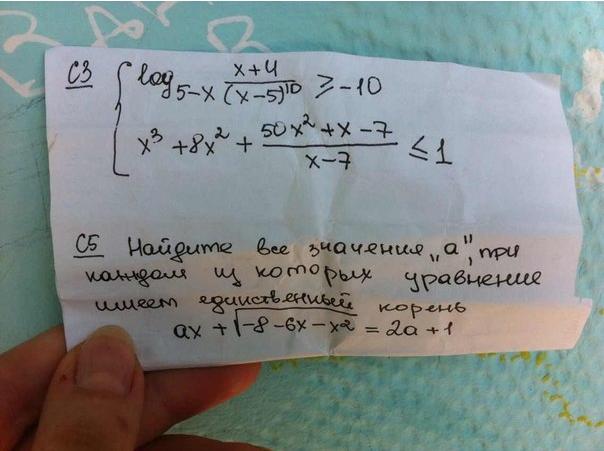 C3 { log_{5-x} \frac{x+4}{(x-5)^{10}} ≥ -10
x^3 + 8x^2 + \frac{50x^2 + x - 7}{x-7} ≤ 1
C5 Найдите все значения „а", при
каждом из которых уравнение
имеет единственный корень
ax + \sqrt{-8-6x-x^2} = 2a+1